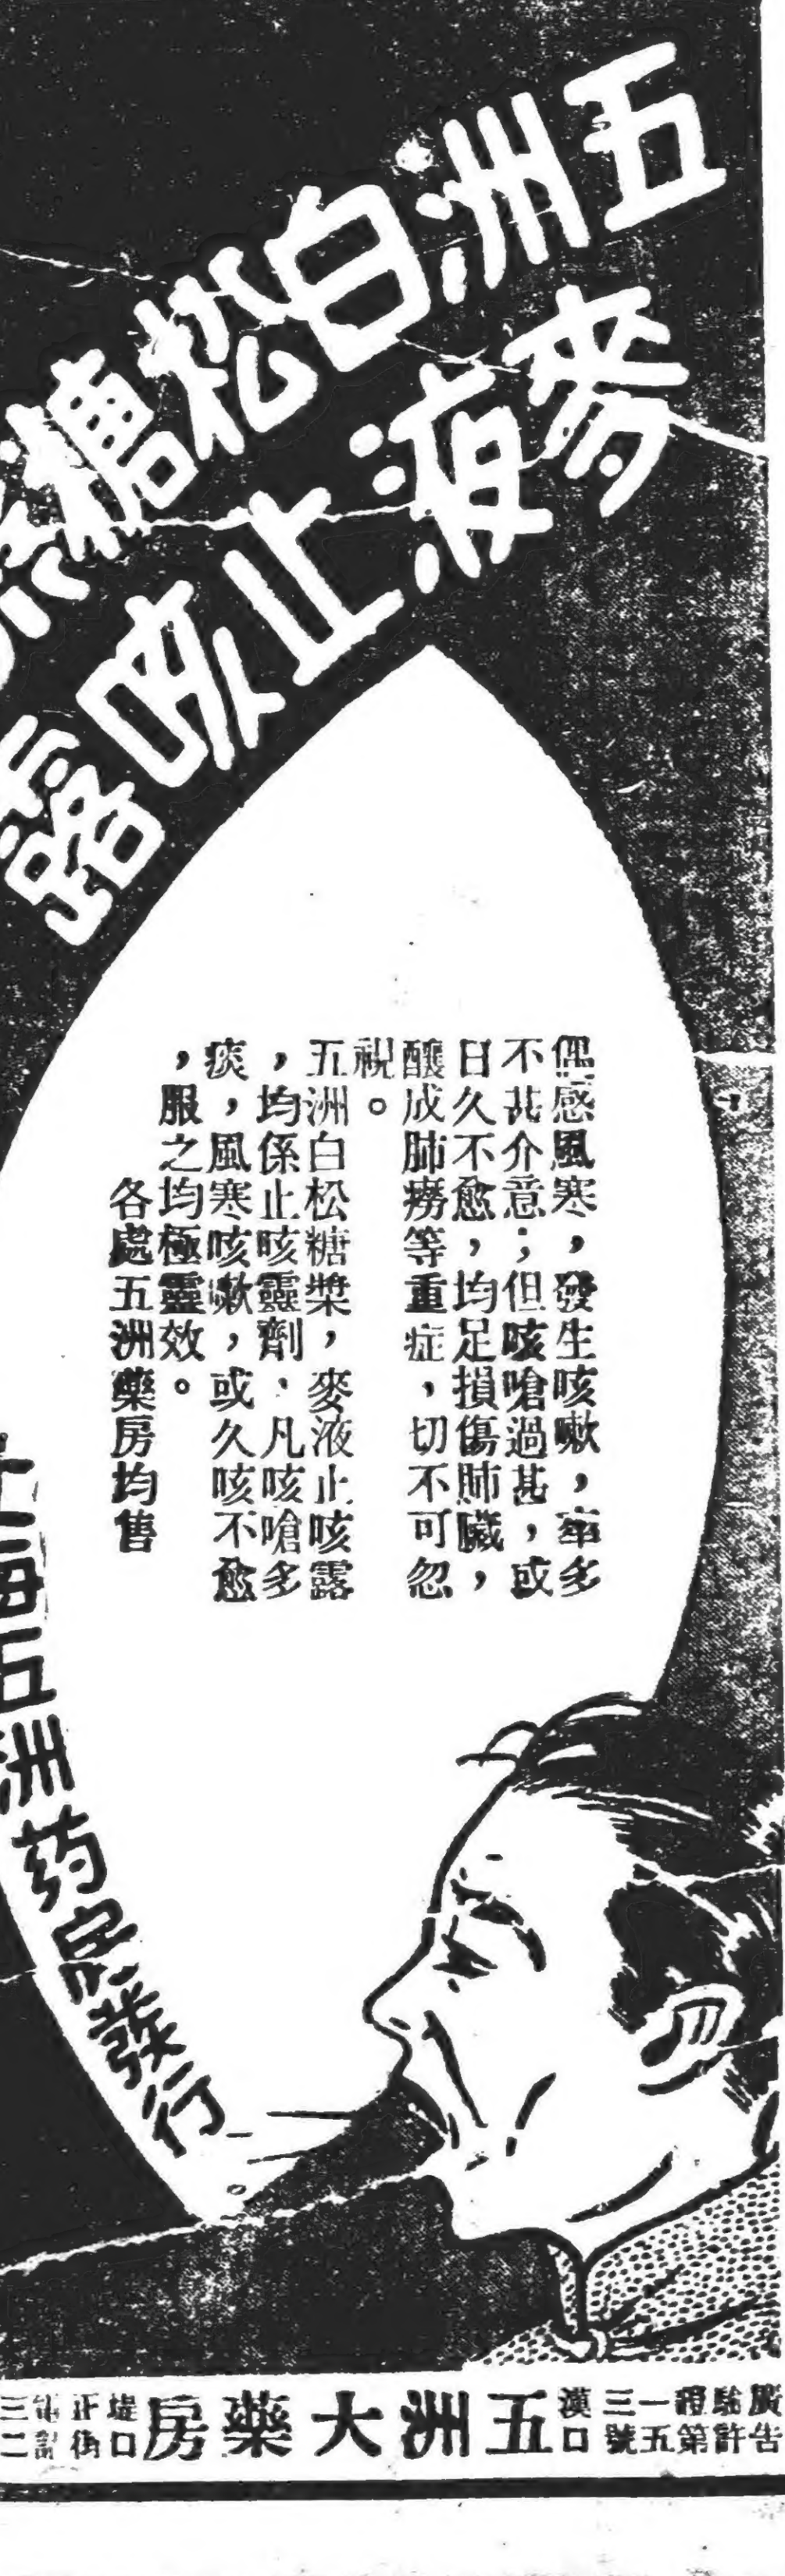 五洲白松糖
麥液止咳露
偶感風寒，發生咳嗽，率多
不甚介意；但咳嗆過甚，或
日久不愈，均足損傷肺臟，
釀成肺癆等重症，切不可忽
視。
五洲白松糖漿，麥液止咳露
，均係止咳靈劑，凡咳嗆多
痰，風寒咳嗽，或久咳不愈
，服之均極靈效。
各處五洲藥房均售
上海五洲药房發行
廣告
許第
一五
三號
漢口
五洲大藥房
堤口